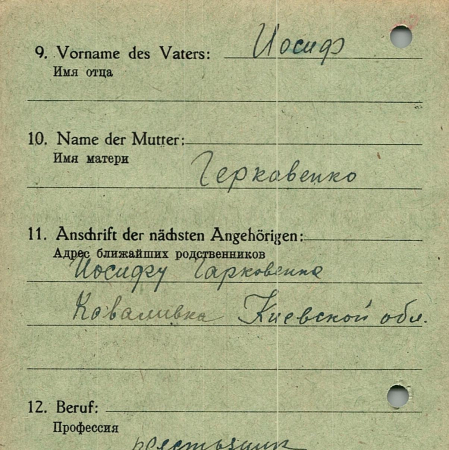 9. Vorname des Vaters: Иосиф
Имя отца
10. Name der Mutter:
Имя матери
Герковенко
11. Anschrift der nächsten Angehörigen:
Адрес ближайших родственников
Иосифу Гарковенко
Коваливка Киевской обл.
12. Beruf:
Профессия